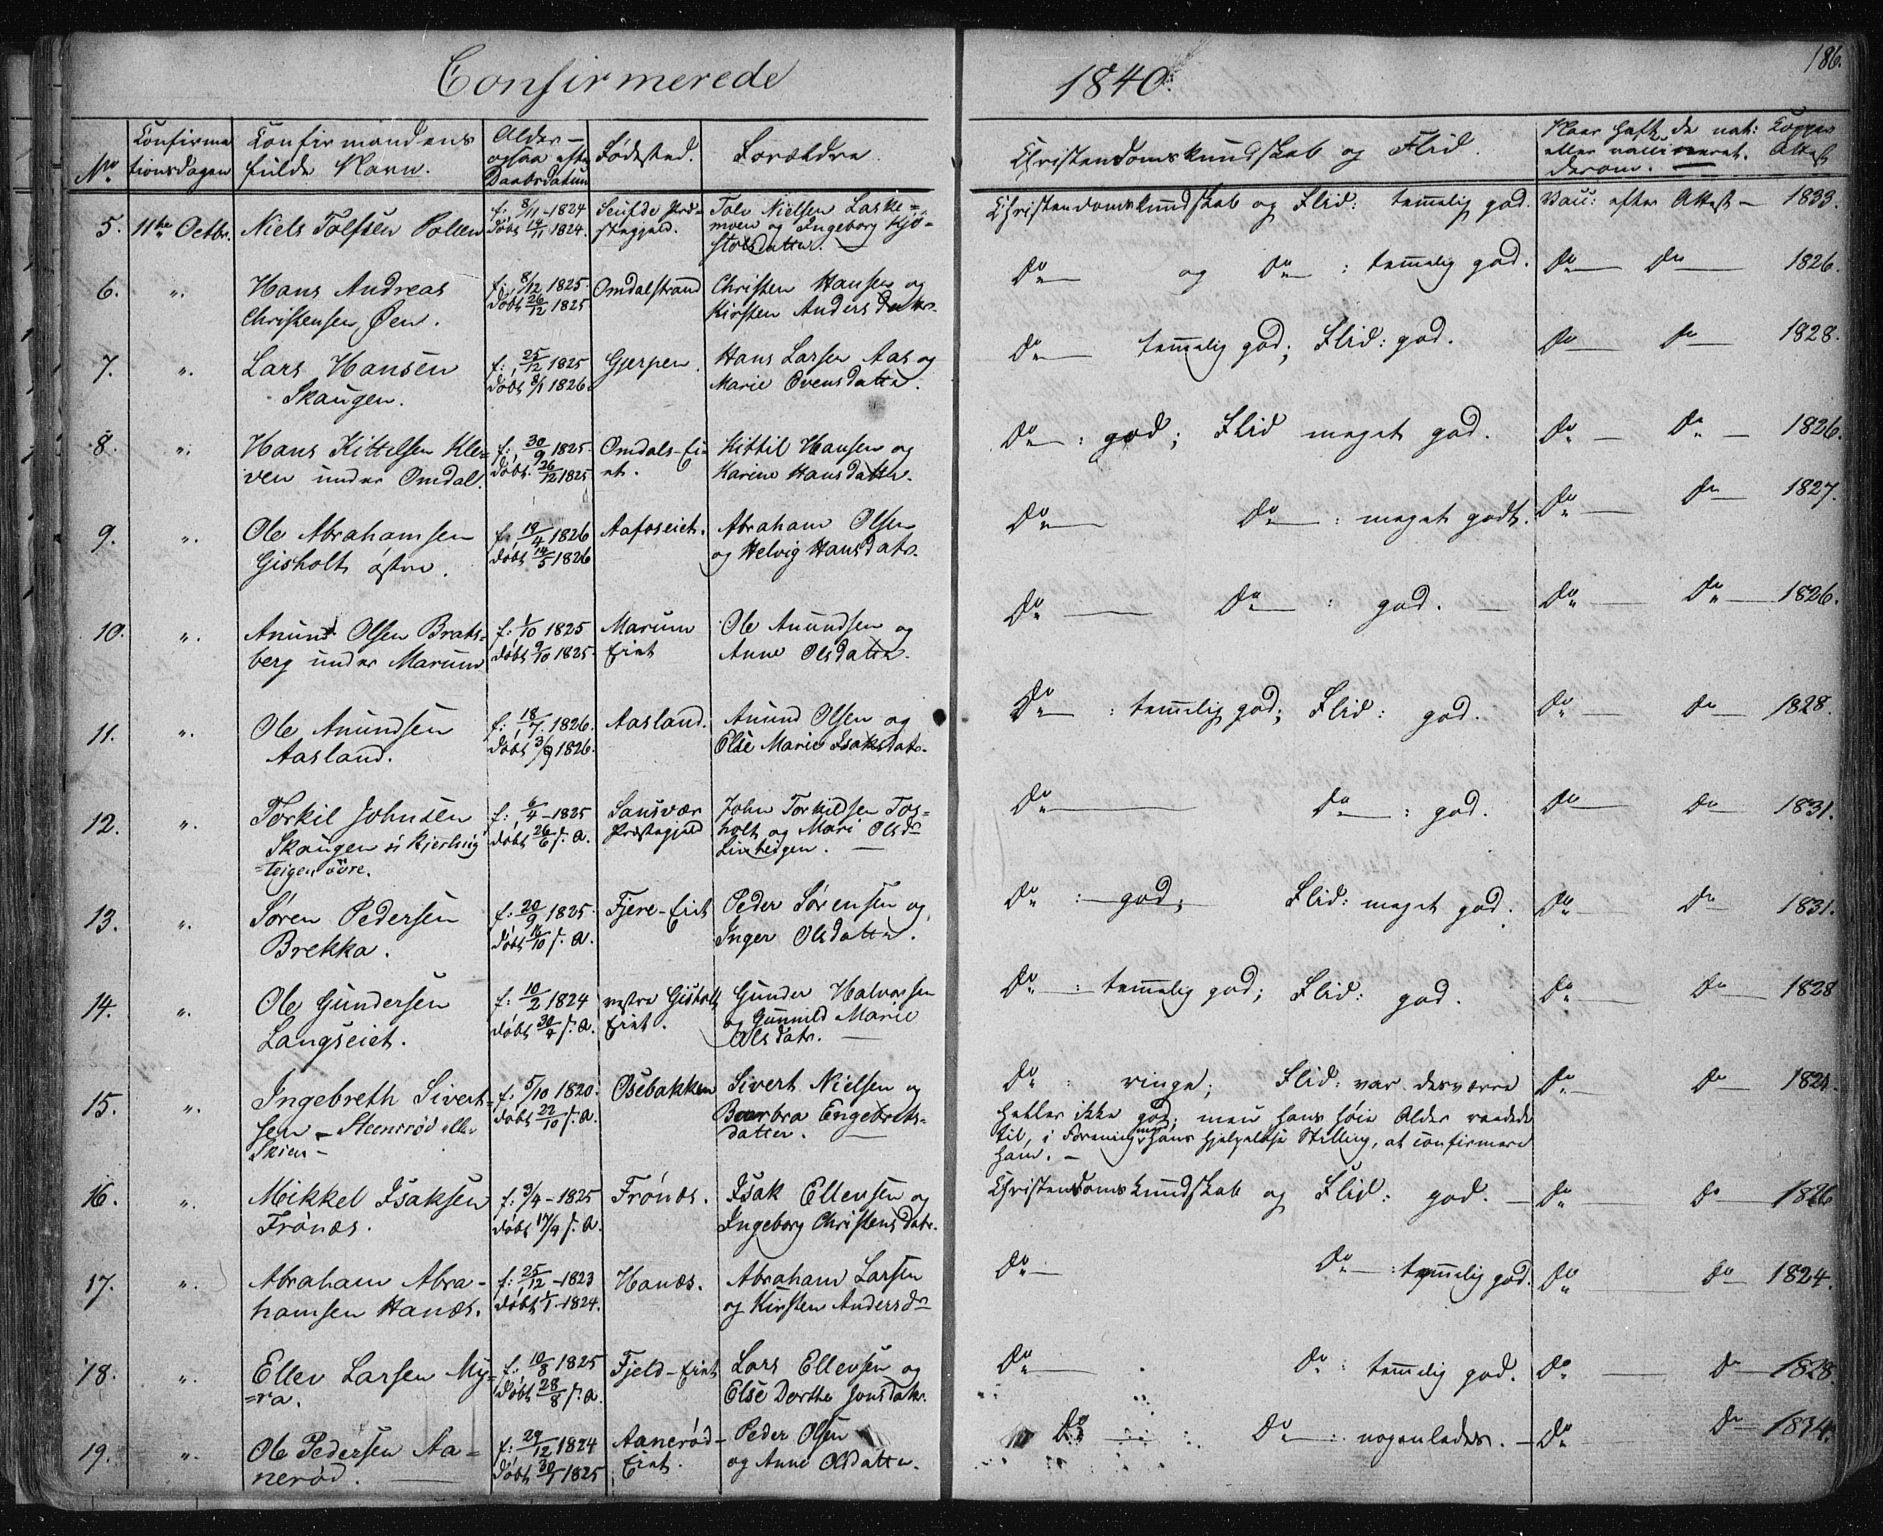 186.
Confirmerede 1840.
No. Confirmationsdagen Confirmandens fulde Navn. Alder ogsaa efter Daabsdatum Fødested. Forældre. Christendomskundskab og Flid. Naar haft de nat: eller vaccineret. Koppe Attest derom.
5. 11te Octbr. Niels Tolfsen Pollen f: 8/11 1824 Døbt 14/11 1824. Seufde Præstegjeld. Tolv Nielsen Laskemoen og Ingeborg Kjøstolsdatter. Christendomskundskab og Flid: temmelig god. Vac: efter Attest – 1833.
6. ". Hans Andreas Christensen Øen. f: 8/12 1825 Døbt 26/12 1825 Omdalstrand Christen Hansen og Kirsten Andersdatr. Do og Do : temmelig god. Do Do 1826.
7. ". Lars Hansen Skaugen. f: 25/12 1825 Døbt 8/1 1826. Gjerpen. Hans Larsen Aas og Marie Ovensdatter. Do temmelig god; Flid: god. Do Do 1828.
8. ". Hans Kittelsen Kleven under Omdal. f: 30/9 1825. Døbt 26/12 1825 Omdals-Eiet. Kittil Hansen og Karine Hansdatter. Do : god; Flid meget god. Do Do 1826.
9. ". Ole Abrahamsen Gisholt østre. f: 19/4 1826 Døbt 14/5 1826 Aafoseiet. Abraham Olsen og Helvig Hansdatr. Do Do : meget godt. Do Do 1827.
10. ". Anund Olsen Bratsberg under Marum f: 1/10 1825 Døbt 9/10 1825. Marum Eiet Ole Anundsen og Anne Olsdatter. Do Do : god. Do Do 1826.
11. ". Ole Anundsen Aasland. f: 18/7 1826. Døbt 3/9 1826. Aasland. Anund Olsen og Else Marie Isaksdatr. Do : temmelig god; Flid: god. Do Do 1828.
12. ". Torkil Johnsen Skaugen i Kjerlingteigen övre. f: 6/4 1825 Døbt 26/6 s. A. Sansvær Præstegjeld John Torkildsen Tosholt og Mari Olsdr Linteigen. Do Do : god. Do Do 1831.
13. ". Søren Pedersen Brekka. f: 20/9 1825. Døbt 16/10 s. A. Fjere-Eiet Peder Sørensen og Inger Olsdatter. Do : god; Flid: meget god. Do Do 1831.
14. ". Ole Gundersen Langseiet. f: 10/2 1824 Døbt 30/4 s. A. vestre Gisholt Eiet. Gunder Halvorsen og Gunnild Marie Olsdatr. Do : temmelig god; Flid: god. Do Do 1828
15. ". Ingebreth Sivertsen – Steensrød eller Skien – f: 5/10 1820. Døbt 22/10 s. A. Osebakken Sivert Nielsen og Barbra Engebretsdatter. Do : ringe; Flid: var desværre heller ikke god; men hans høie Alder raadede til, i Forening med hans hjelpeløse Stilling, at confirmere ham. – Do Do 1821.
16. ". Mikkel Isaksen Frønæs. f: 3/4 – 1825 Døbt 17/4 s. A. Frønæs. Isak Ellevsen og Ingeborg Christensdatr. Christendomskundskab og Flid: god. – Do Do 1826
17. ". Abraham Abrahamsen Hanæs. f: 25/12 – 1823 Døbt 1/1 – 1824. Hanæs. Abraham Larsen og Kirsten Andersdr Do Do : temmelig god. Do Do 1824.
18. ". Ellev Larsen Myra. f: 10/8 1825 Døbt 28/8 s. A. Fjeld-Eiet Lars Ellevsen og Else Dorthe Jonsdatr. Do Do : temmelig god. Do Do 1828.
19. ". Ole Pedersen Aanerød. f: 29/12 1824 Døbt 30/1 1825 Aanerød-Eiet. Peder Olsen og Anne Olsdatter. Do Do : nogenledes. – Do Do 1834.